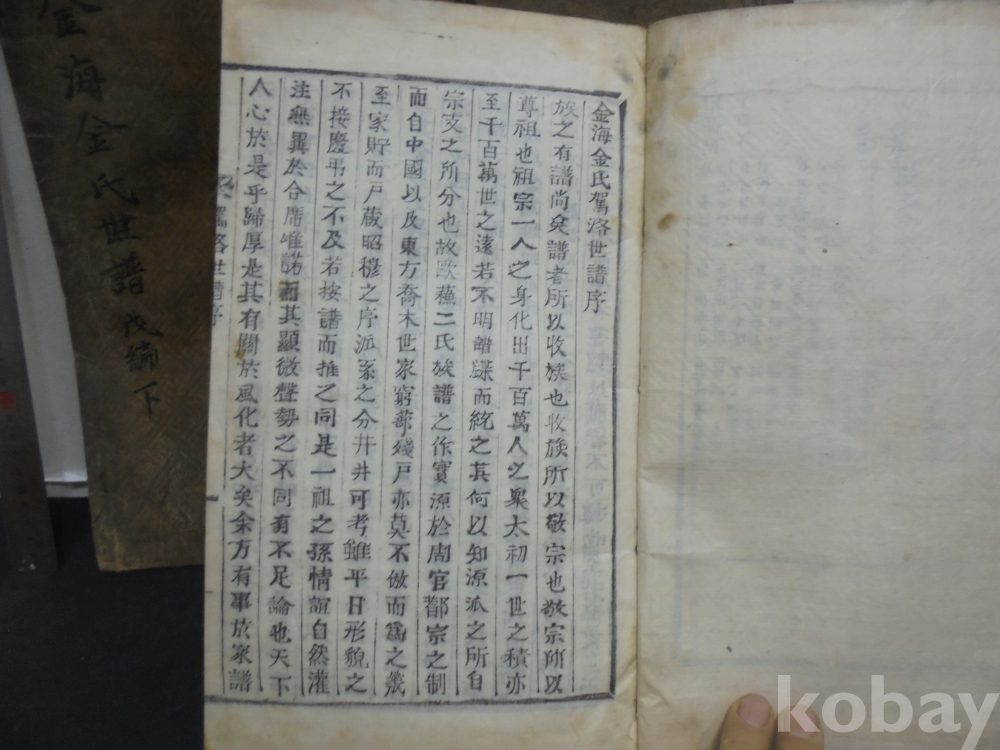 金海金氏駕洛世譜序
族之有譜尚矣譜者所以收族也收族所以敬宗也敬宗所以
尊祖也祖宗一人之身化出千百萬人之衆太初一世之積亦
至千百萬世之遠若不明譜牒而統之其何以知源派之所自
宗支之所分也故歐蘓二氏族譜之作實源於周官都宗之制
而自中國以及東方喬木世家窮蔀殘戶亦莫不倣而爲之義
至家貯而戶蔵昭穆之序派系之分井井可考雖平日形貌之
不接慶弔之不及若按譜而推之同是一祖之孫情誼自然灌
注無異於合席唯諾而其顯微聲勢之不同有不足論也天下
人心於是乎歸厚是其有關於風化者大矣余方有事於家譜
駕洛世譜序
一
金海金氏世譜 戊編 下
kobay